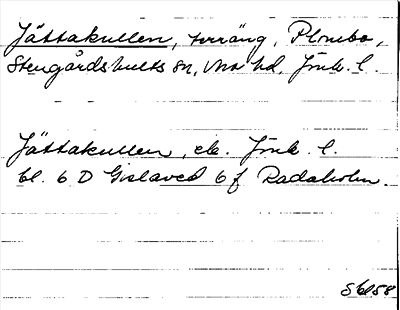 Jättakullen, terräng, Plombo,
Stengårdshults sn, Mo hd, Jönk. l.
Jättakullen, ek. Jönk. l.
bl. 6 D Gislaved 6 f Radaholm.